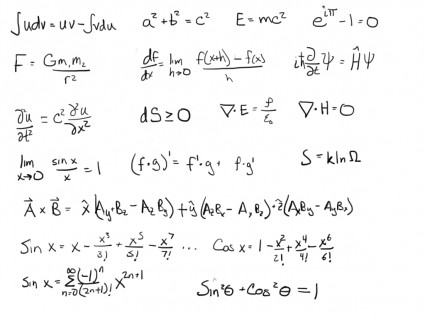 ∫udv = uv - ∫vdu   a² + b² = c²   E = mc²   e^{iπ} - 1 = 0
F = Gm₁m₂/r²   df/dx = lim_{h→0} (f(x+h) - f(x))/h   iħ ∂/∂t Ψ = ĤΨ
∂²u/∂t² = c² ∂²u/∂x²   dS ≥ 0   ∇·E = ρ/ε₀   ∇·H = 0
lim_{x→0} sin x/x = 1   (f·g)' = f'·g + f·g'   S = k ln Ω
A⃗ × B⃗ = x̂(A_yB_z - A_zB_y) + ŷ(A_zB_x - A_xB_z) + ẑ(A_xB_y - A_yB_x)
Sin x = x - x³/3! + x⁵/5! - x⁷/7! ...   Cos x = 1 - x²/2! + x⁴/4! - x⁶/6!
Sin x = ∑_{n=0}^{∞} (-1)ⁿ/(2n+1)! x^{2n+1}   Sin²θ + Cos²θ = 1